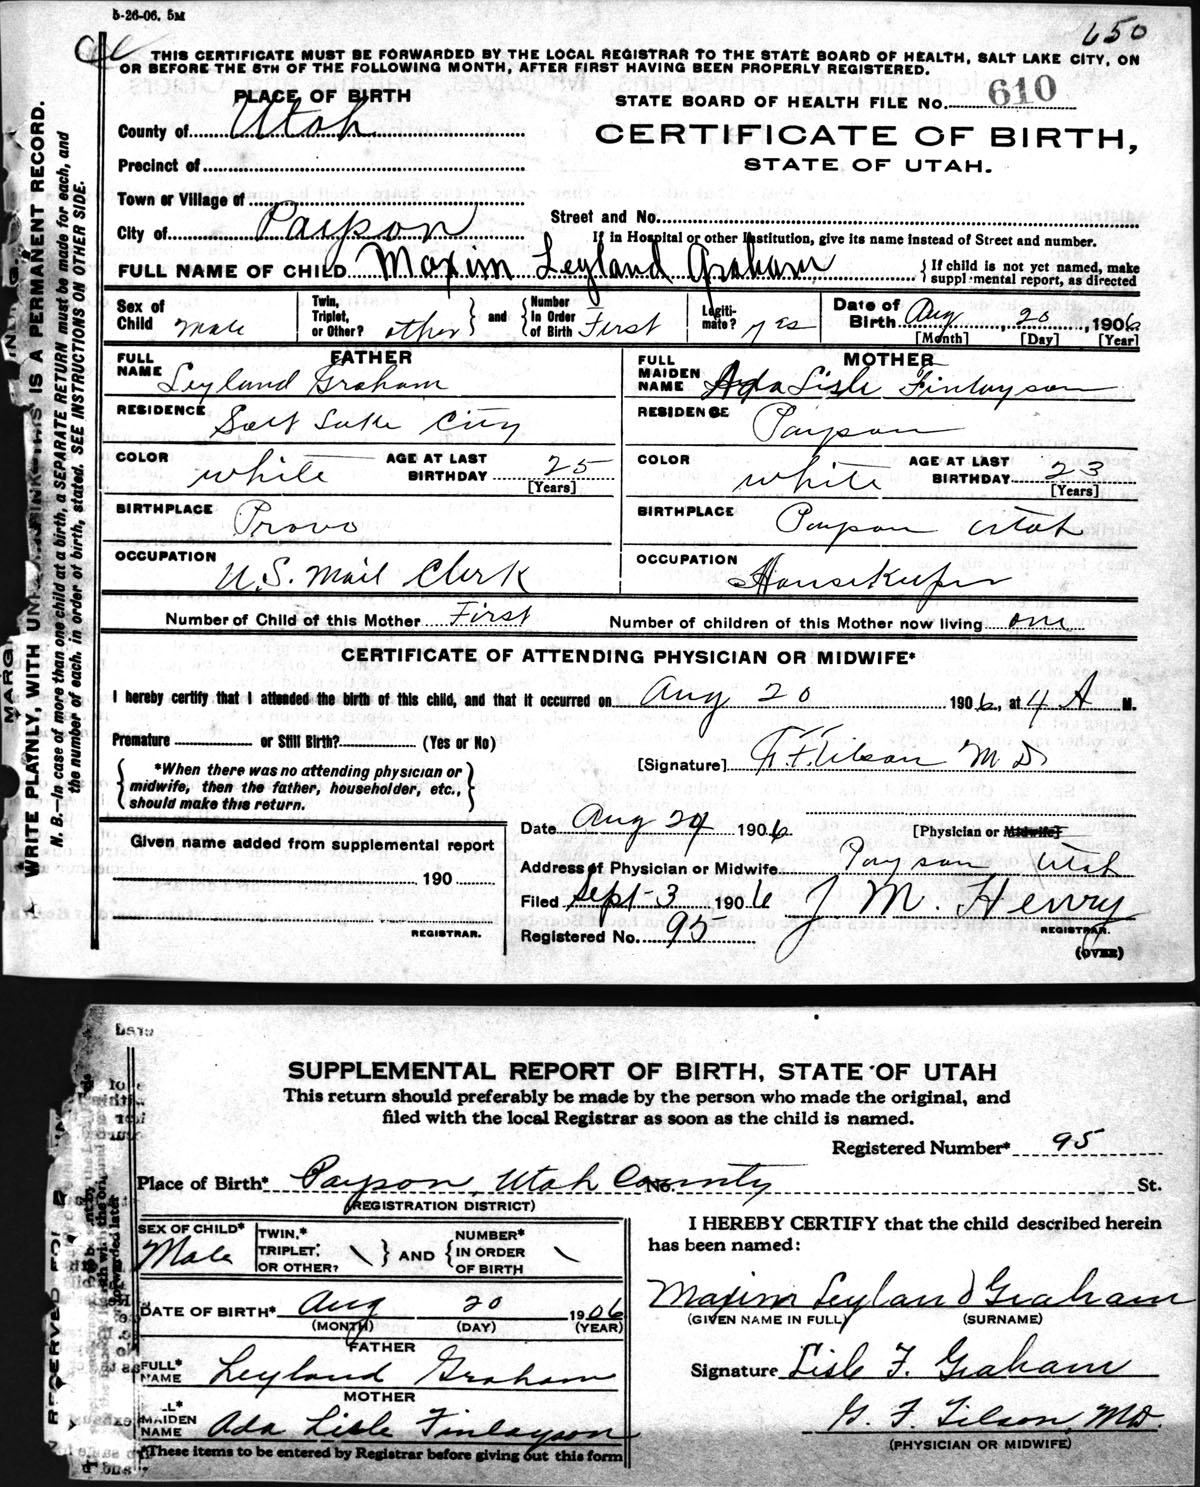 5-26-06. 5M
650
THIS CERTIFICATE MUST BE FORWARDED BY THE LOCAL REGISTRAR TO THE STATE BOARD OF HEALTH, SALT LAKE CITY, ON
OR BEFORE THE 5TH OF THE FOLLOWING MONTH, AFTER FIRST HAVING BEEN PROPERLY REGISTERED.
PLACE OF BIRTH
STATE BOARD OF HEALTH FILE No. 610
County of Utah
CERTIFICATE OF BIRTH,
STATE OF UTAH.
Precinct of
Town or Village of
Street and No.
City of Payson
If in Hospital or other Institution, give its name instead of Street and number.
FULL NAME OF CHILD Maxim Leyland Graham } If child is not yet named, make supplemental report, as directed
Sex of Child Male
Twin, Triplet, or Other? other } and { Number in Order of Birth First
Legitimate? yes
Date of Birth Aug, 20, 1906
[Month] [Day] [Year]
FATHER
FULL NAME Leyland Graham
MOTHER
FULL MAIDEN NAME Ada Lisle Finlayson
RESIDENCE Salt Lake City
RESIDENCE Payson
COLOR white AGE AT LAST BIRTHDAY 25 [Years]
COLOR white AGE AT LAST BIRTHDAY 23 [Years]
BIRTHPLACE Provo
BIRTHPLACE Payson Utah
OCCUPATION U.S. Mail Clerk
OCCUPATION Housekeeper
Number of Child of this Mother First
Number of children of this Mother now living one
CERTIFICATE OF ATTENDING PHYSICIAN OR MIDWIFE*
I hereby certify that I attended the birth of this child, and that it occurred on Aug 20 1906, at 4 A M.
Premature or Still Birth? (Yes or No)
[Signature] Tilson M.D.
{ *When there was no attending physician or
midwife, then the father, householder, etc.,
should make this return. }
Date Aug 29 1906
[Physician or Midwife]
Given name added from supplemental report
190
REGISTRAR.
Address of Physician or Midwife Payson Utah
Filed Sept-3 1906 J. M. Henry
REGISTRAR.
Registered No. 95
(OVER)
WRITE PLAINLY, WITH UNFADING INK—THIS IS A PERMANENT RECORD.
N. B.—In case of more than one child at a birth, a SEPARATE RETURN must be made for each, and
the number of each, in order of birth, stated. SEE INSTRUCTIONS ON OTHER SIDE.
SUPPLEMENTAL REPORT OF BIRTH, STATE OF UTAH
This return should preferably be made by the person who made the original, and
filed with the local Registrar as soon as the child is named.
Registered Number* 95
Place of Birth* Payson, Utah County No. St.
(REGISTRATION DISTRICT)
SEX OF CHILD* Male
TWIN,* TRIPLET,* OR OTHER? \ } AND { NUMBER* IN ORDER OF BIRTH \
DATE OF BIRTH* Aug 20 1906
(MONTH) (DAY) (YEAR)
FATHER
FULL* NAME Leyland Graham
MOTHER
MAIDEN NAME Ada Lisle Finlayson
*These items to be entered by Registrar before giving out this form
I HEREBY CERTIFY that the child described herein
has been named:
Maxim Leyland Graham
(GIVEN NAME IN FULL) (SURNAME)
Signature Lisle F. Graham
G. F. Tilson, MD.
(PHYSICIAN OR MIDWIFE)